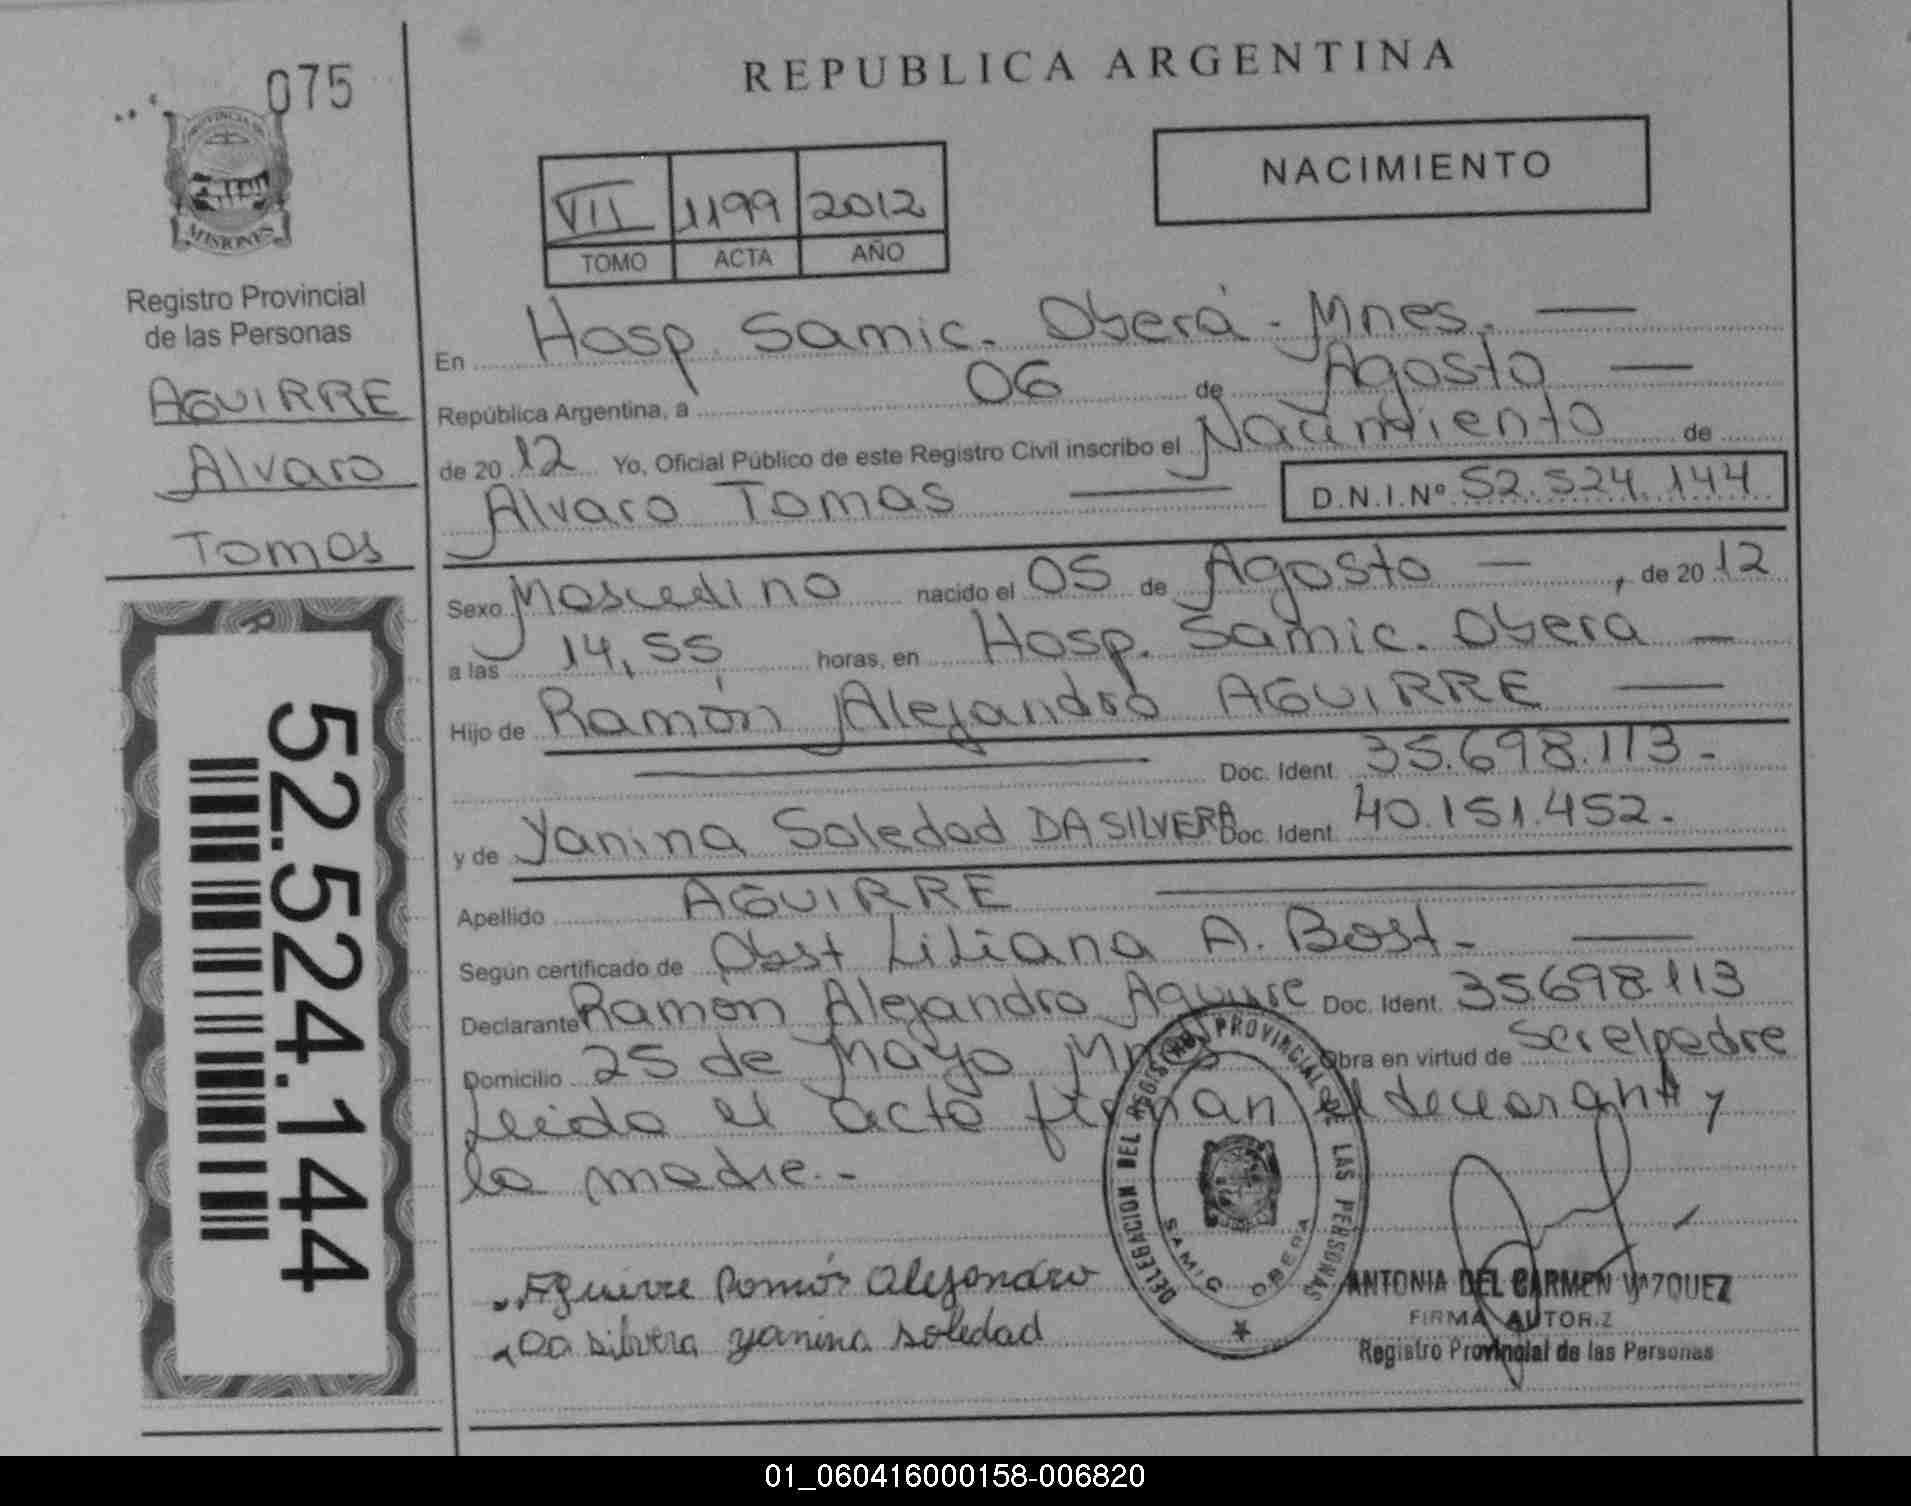 075
PROVINCIA DE
MISIONES
Registro Provincial
de las Personas
AGUIRRE
Alvaro
Tomas
52.524.144
REPUBLICA ARGENTINA
NACIMIENTO
VII 1199 2012
TOMO ACTA AÑO
En Hosp. Samic. Oberá - Mnes. —
República Argentina, a 06 de Agosto —
de 2012 Yo, Oficial Público de este Registro Civil inscribo el Nacimiento de
Alvaro Tomas — D.N.I.Nº 52.524.144
Sexo Masculino nacido el 05 de Agosto — , de 2012
a las 14,55 horas, en Hosp. Samic. Obera —
Hijo de Ramón Alejandro AGUIRRE —
— Doc. Ident. 35.698.113-
y de Yanina Soledad DA SILVERA Doc. Ident. 40.151.452-
Apellido AGUIRRE —
Según certificado de Obst Liliana A. Bost- —
Declarante Ramon Alejandro Aguirre Doc. Ident. 35698.113
Domicilio 25 de Mayo Mnes Obra en virtud de ser el padre
Leida el acta firman el declarante y
la madre.-
DELEGACION DEL REGISTRO PROVINCIAL DE LAS PERSONAS
SAMIC OBERA
Aguirre Ramón Alejandro
Da silvera yanina soledad
ANTONIA DEL CARMEN VAZQUEZ
FIRMA AUTORIZ
Registro Provincial de las Personas
01_060416000158-006820